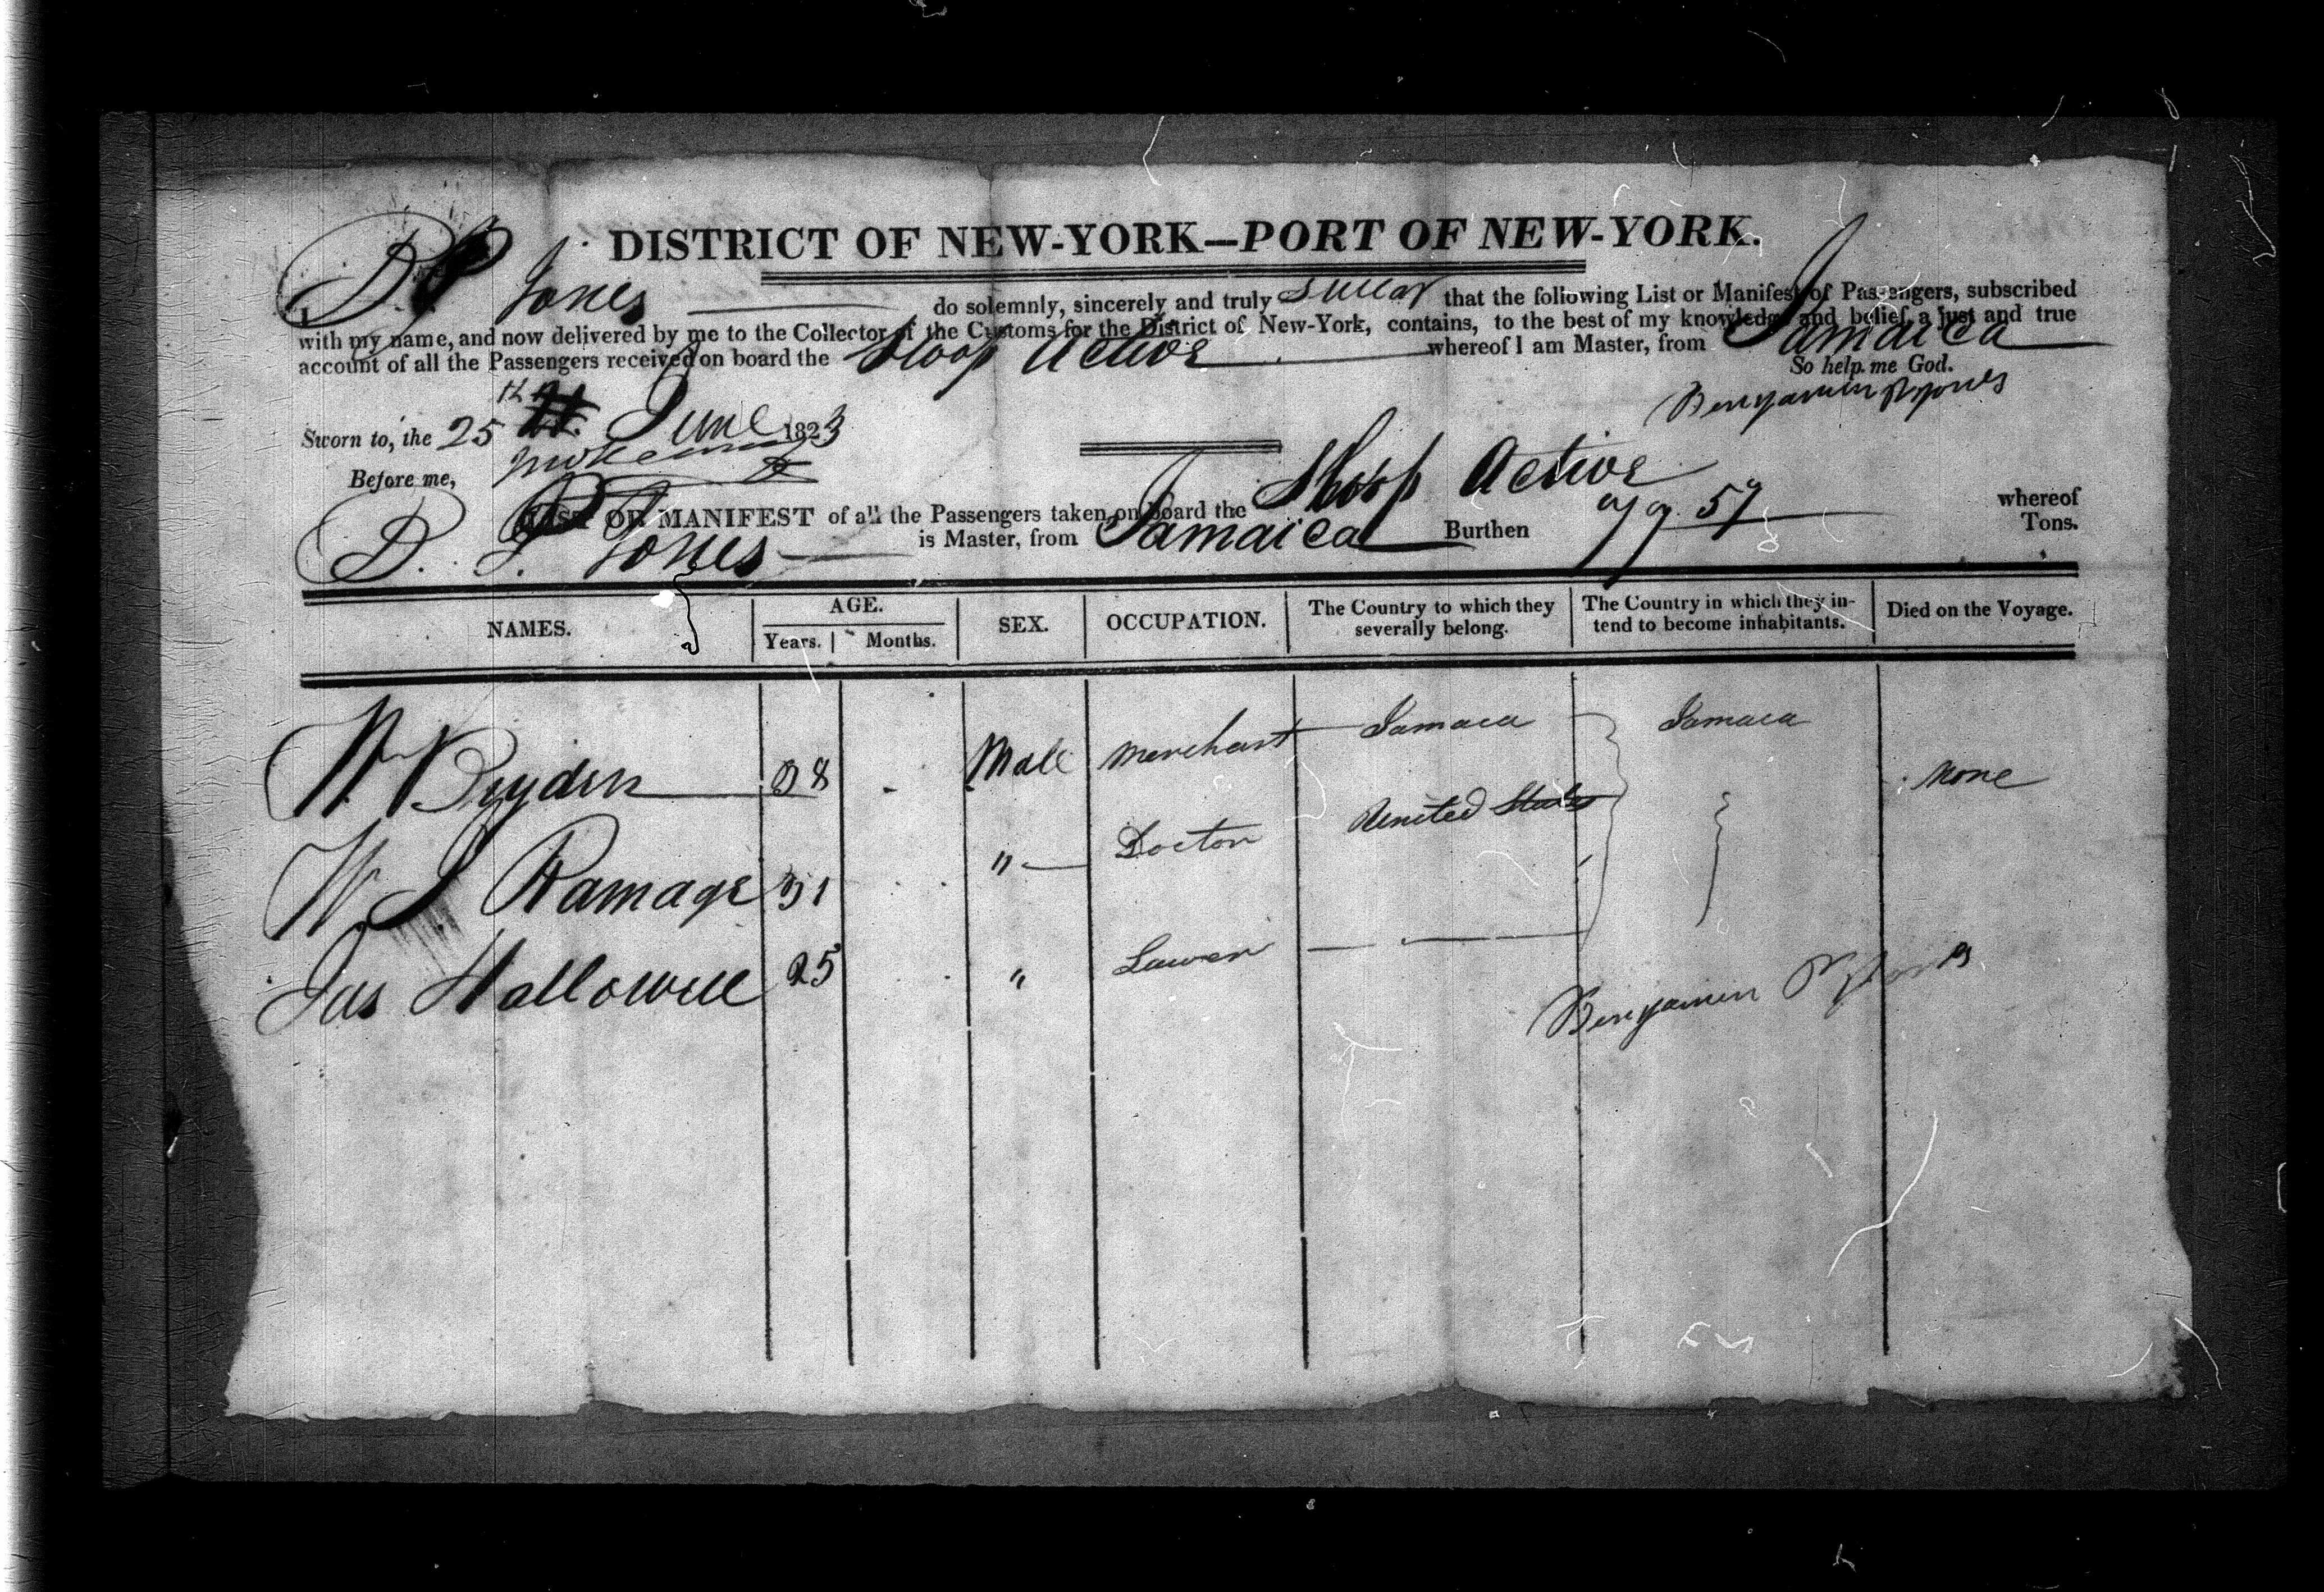 DISTRICT OF NEW-YORK—PORT OF NEW-YORK.
I, B P Jones do solemnly, sincerely and truly Swear that the following List or Manifest of Passengers, subscribed
with my name, and now delivered by me to the Collector of the Customs for the District of New-York, contains, to the best of my knowledge and belief, a just and true
account of all the Passengers received on board the Sloop Active whereof I am Master, from Jamaica
So help me God.
Benjamin P Jones
Sworn to, the 25 June 1823
Before me,
LIST OR MANIFEST of all the Passengers taken on board the Sloop Active whereof
B. P. Jones is Master, from Jamaica Burthen 57 Tons.
NAMES. AGE. SEX. OCCUPATION. The Country to which they severally belong. The Country in which they intend to become inhabitants. Died on the Voyage.
Years. Months.
W. Bryden 38 Male Merchant Jamaca Jamaca None
W. J Ramage 31 " Doctor United States
Jas Hallowell 25 " Lawer
Benjamin P Jones